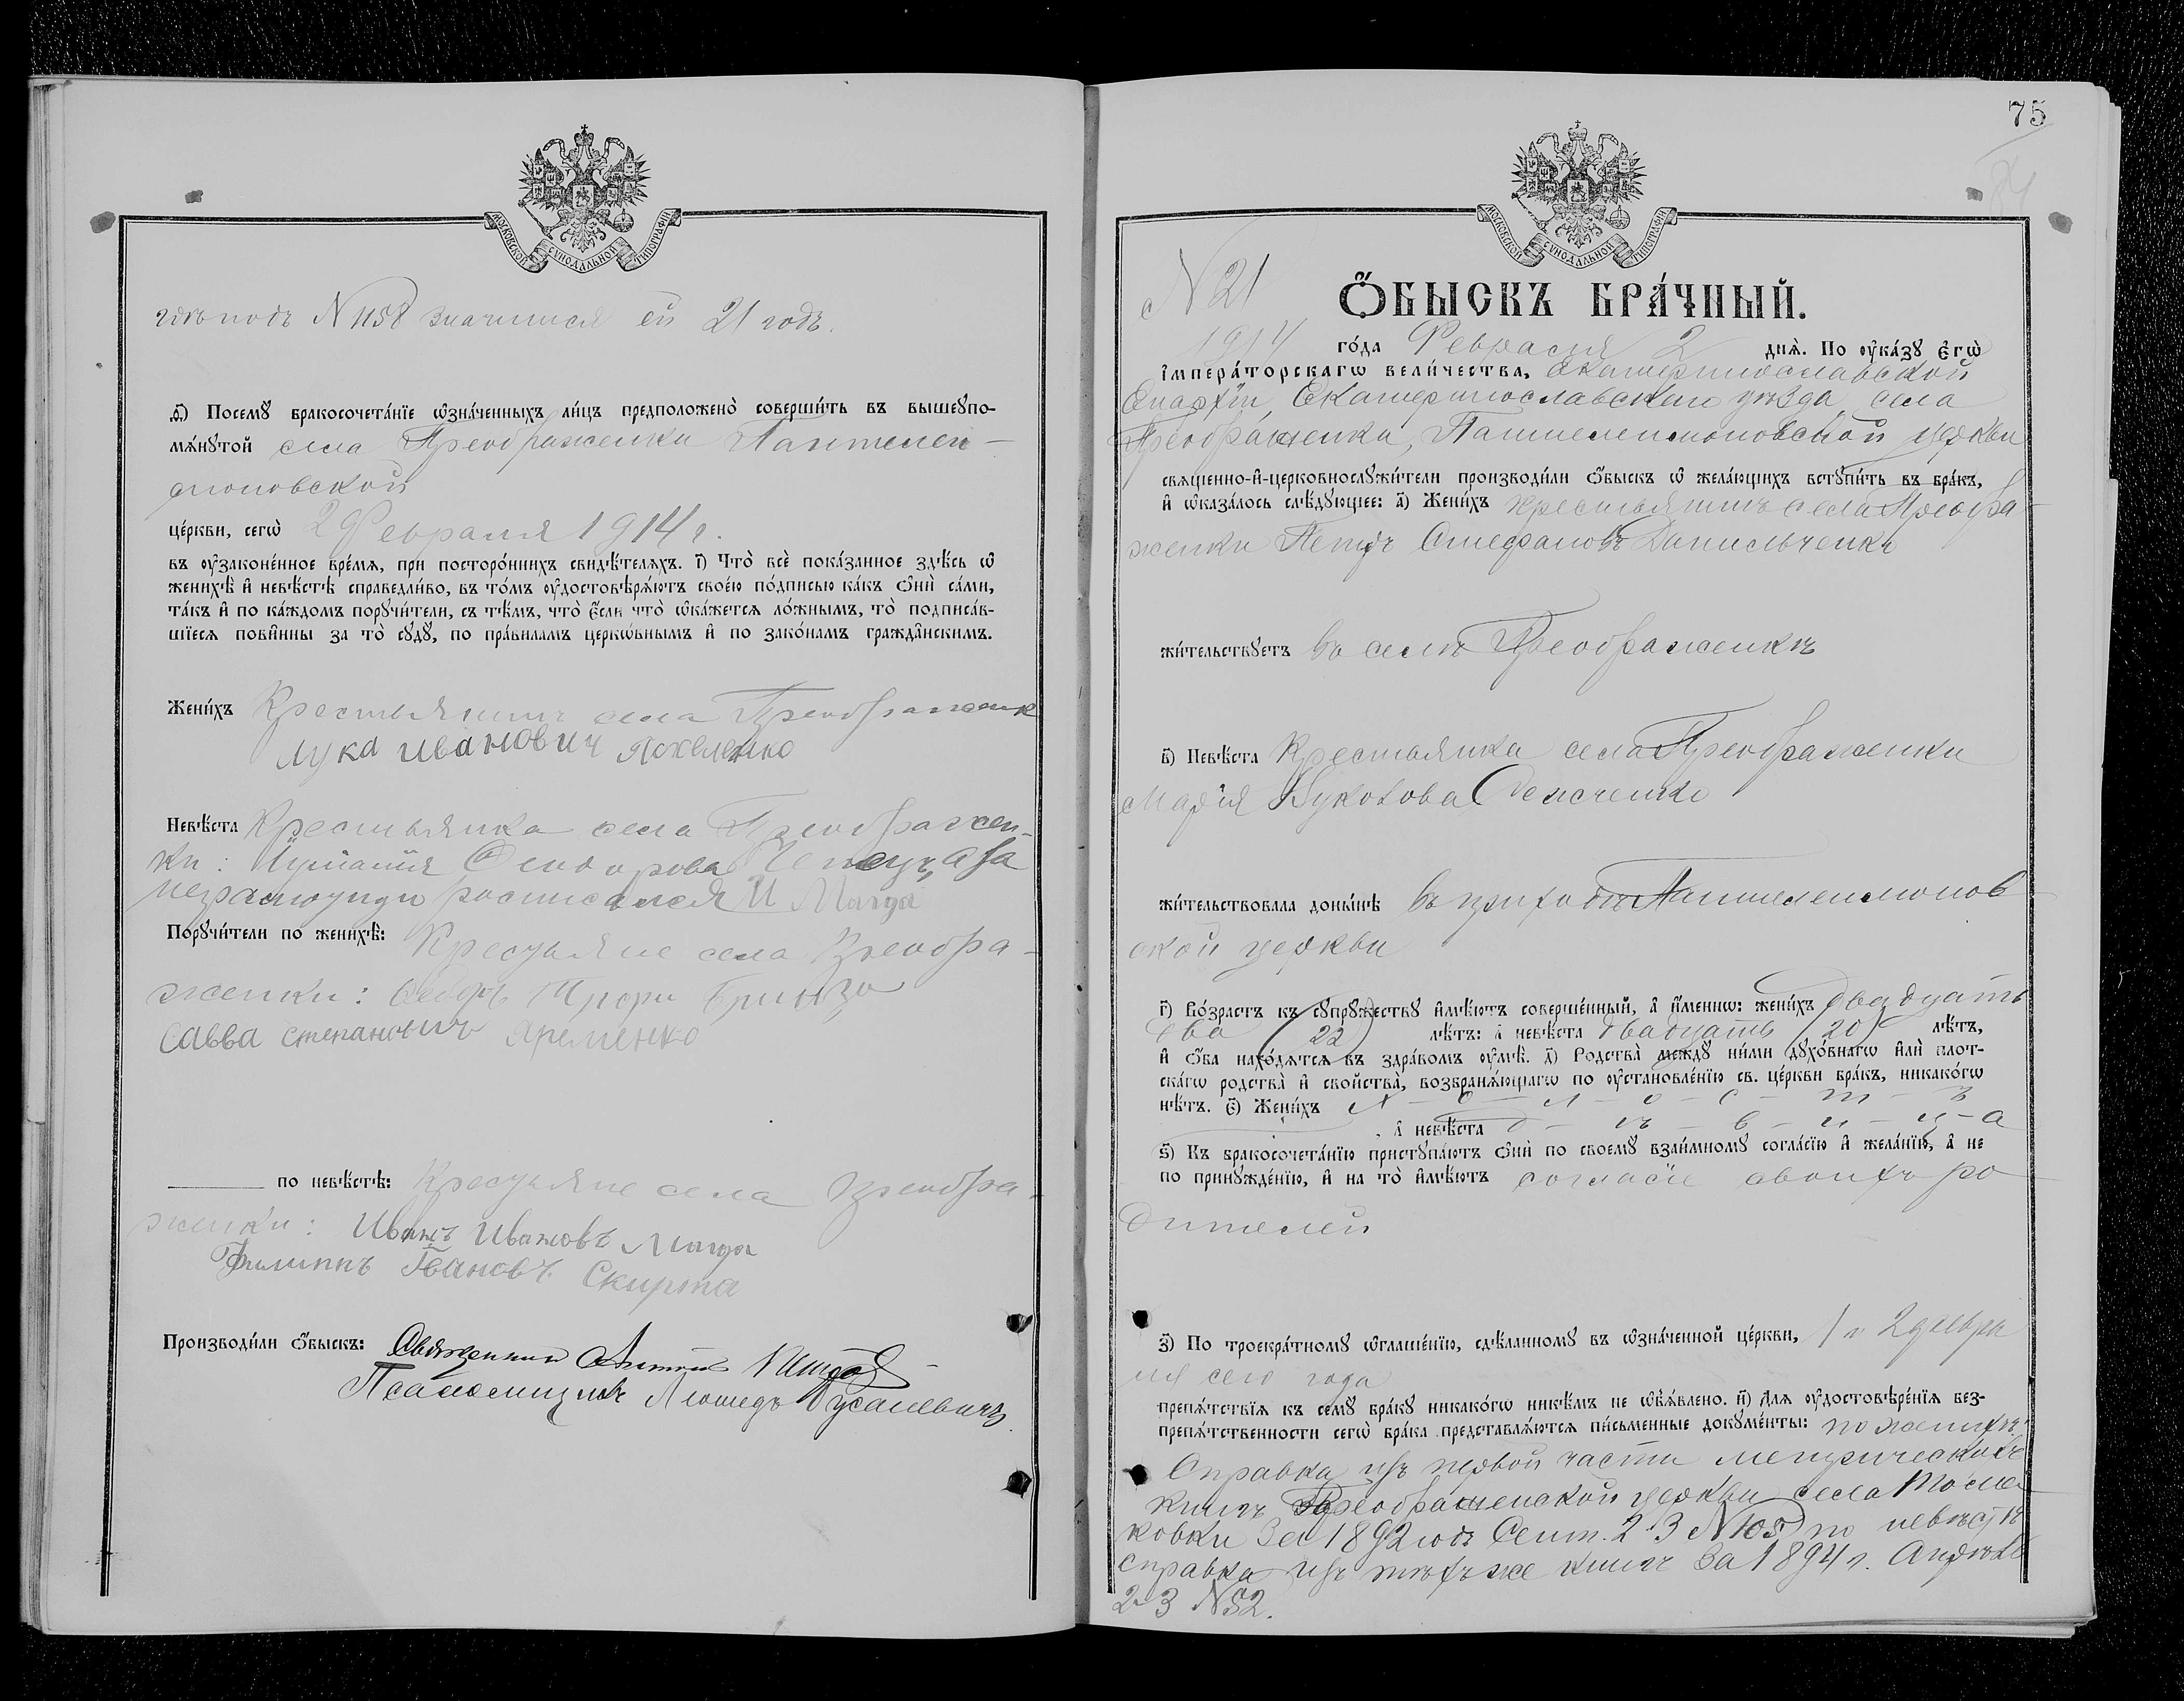 МОСКОВСКОЙ СѴНОДАЛЬНОЙ ТИПОГРАФІИ
годъ подъ N 1158 значится ей 21 годъ.
д҃і) Посемꙋ бракосочета́нїе ѡ҆зна́ченныхъ ли́цъ предположено̀ соверши́ть въ вышеꙋпо-
мѧ́нꙋтой села Преображенки Пантелеи-
моновской
це́ркви, сегѡ̀ 2 Февраля 1914 г.
въ ᲂу҆законе́нное вре́мѧ, при посторо́ннихъ свидѣ́телѧхъ. і҃) Что̀ всѐ пока́занное здѣ́сь ѡ҆
женихѣ̀ и҆ невѣ́стѣ справедли́во, въ то́мъ ᲂу҆достовѣрѧ́ютъ свое́ю по́дписью ка́къ ѻ҆нѝ са́ми,
та́къ и҆ по ка́ждомъ порꙋчи́тели, съ тѣ́мъ, что̀ є҆́сли что̀ ѡ҆ка́жетсѧ ло́жнымъ, то̀ подписа́в-
шїесѧ пови́нны за то̀ сꙋдꙋ̀, по пра́виламъ церко́внымъ и҆ по зако́намъ гражда́нскимъ.
Жени́хъ Крестьянинъ села Преображенк
Лука Иванович Яковленко
Невѣ́ста Крестьянка села Преображен-
ки: Феодорова а за
неграмотную росписался И Магда
Порꙋчи́тели по женихѣ̀: Крестьяне села Преобра-
женки:
Савва Степановичъ Яременко
по невѣ́стѣ: Крестьяне села Преобра-
женки: Иванъ Ивановъ Магда
Филиппъ Ивановъ Скирта
Производи́ли ѻ҆́быскъ: Священникъ
Псаломщикъ Леонидъ
75
МОСКОВСКОЙ СѴНОДАЛЬНОЙ ТИПОГРАФІИ
N 21
Ѻ҆́БЫСКЪ БРА́ЧНЫЙ.
1914 го́да Февраля 2 днѧ̀. По ᲂу҆ка́зꙋ є҆гѡ̀
і҆мпера́торскагѡ вели́чества, Екатеринославской
Епархіи, Екатеринославскаго уѣзда, села
Преображенка, Пантелеимоновской церкви
свѧще́нно-и҆-церковнослꙋжи́тели производи́ли ѻ҆́быскъ ѡ҆ жела́ющихъ встꙋпи́ть въ бра́къ,
и҆ ѡ҆каза́лось слѣ́дꙋющее: а҃) Жени́хъ крестьянинъ села Преобра-
женки Петръ Стефановъ Данильченко
жи́тельствꙋетъ въ селѣ Преображенкѣ
в҃) Невѣ́ста Крестьянка села Преображенки
Марія Демченко
жи́тельствовала доны́нѣ въ приходѣ Пантелеимонов
ской церкви
г҃) Во́зрастъ къ сꙋпрꙋ́жествꙋ и҆мѣ́ютъ соверше́нный, а҆ и҆́меннѡ: жени́хъ двадцать
два (22) лѣ́тъ: а҆ невѣ́ста двадцать (20) лѣ́тъ,
и҆ ѻ҆́ба нахо́дѧтсѧ въ здра́вомъ ᲂу҆мѣ̀. д҃) Родства̀ междꙋ̀ ни́ми дꙋхо́внагѡ и҆лѝ плот-
ска́гѡ родства̀ и҆ сво́йства̀, возбранѧ́ющагѡ по ᲂу҆становле́нїю св. це́ркви бра́къ, никако́гѡ
нѣ́тъ. є҃) Жени́хъ х – о – л – о – с – т – ъ
, а҆ невѣ́ста д – ѣ – в – и – ц – а
ѕ҃) Къ бракосочета́нїю пристꙋпа́ютъ ѻ҆нѝ по своемꙋ̀ взаи́мномꙋ согла́сїю и҆ жела́нїю, а҆ не
по принꙋжде́нїю, и҆ на то̀ и҆мѣ́ютъ согласіе своихъ ро
дителей
з҃) По троекра́тномꙋ ѡ҆глаше́нїю, сдѣ́ланномꙋ въ ѡ҆зна́ченной це́ркви, 1 и 2 февра
ля сего года
препѧ́тствїѧ къ семꙋ̀ бра́кꙋ никако́гѡ никѣ́мъ не ѡ҆б̾ѧ́влено. и҃) Длѧ̀ ᲂу҆достовѣре́нїѧ без-
препѧ́тственности сегѡ̀ бра́ка представлѧ́ютсѧ пи́сьменные докꙋме́нты: по женихѣ:
Справка изъ первой части метрическихъ
книгъ Преображенской церкви села Тома
ковки за 1892 годъ Сент. 23 N 105 по невѣстѣ
справка изъ тѣхъ же книгъ за 1894 г. Апрѣля
23 N 52.